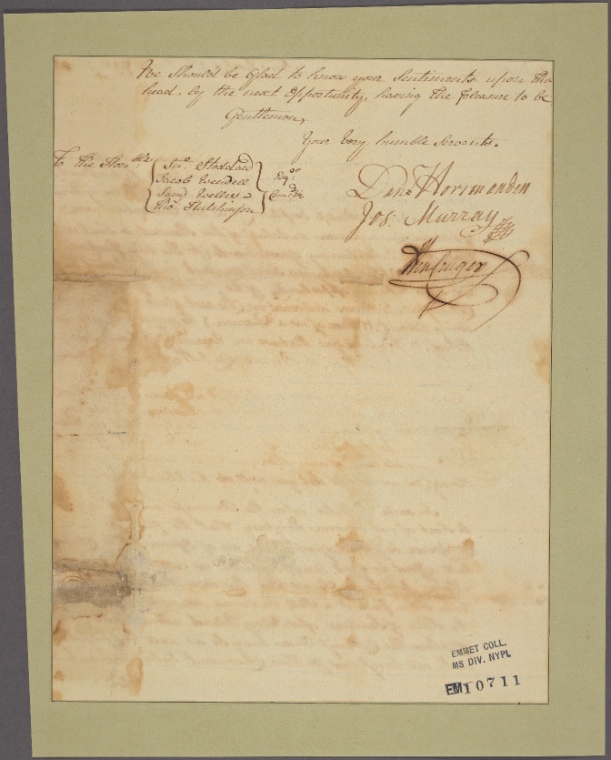 We Should be Glad to know your Sentiments upon this
head, by the next Opportunity, having the Pleasure to be
Gentlemen,
Your very humble Servants.
To the Hon:ble
Jn:o Stoddard
Jacob Wendell
Sam:l Welles
Tho:s Hutchinson
Esq:rs
Com:rs
Dan: Horsmanden
Jos: Murray
Jn Cruger
EMMET COLL.
MS DIV. NYPL
EM10711